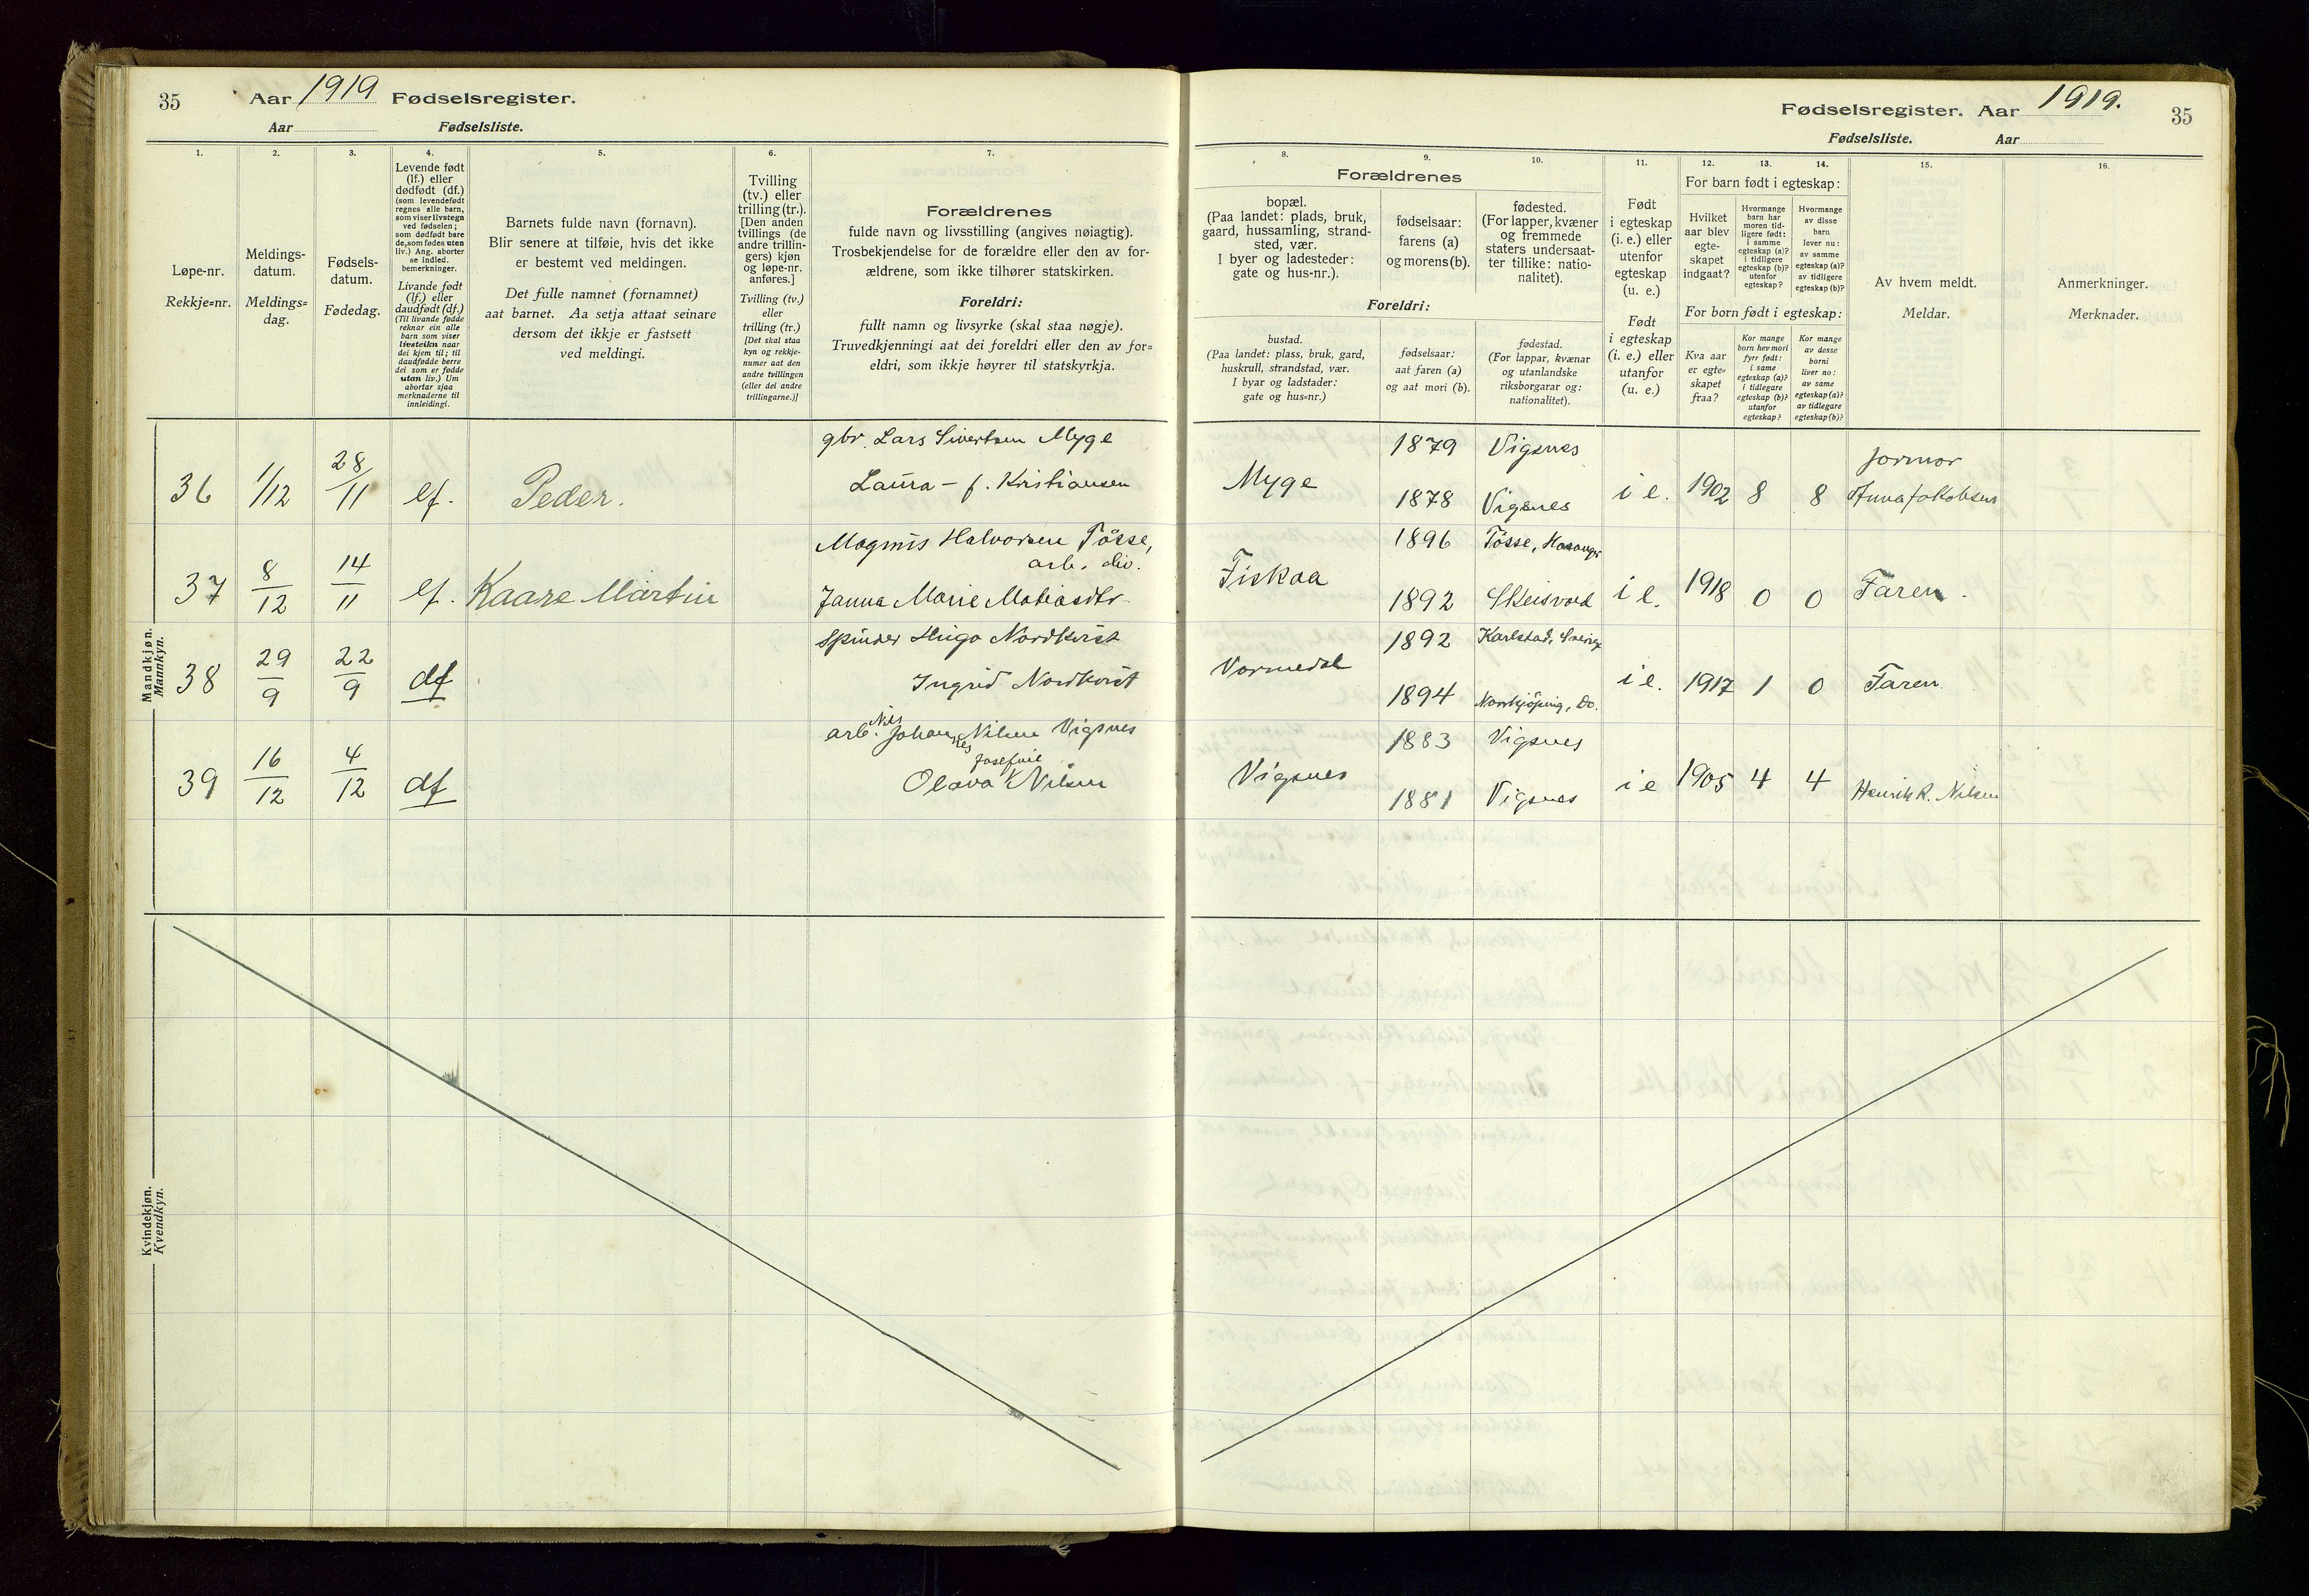 35 Aar 1919 Fødselsregister.
Aar Fødselsliste.
Fødselsregister. Aar 1919. 35
Fødselsliste. Aar
1. 2. 3. 4. 5. 6. 7.
Løpe-nr.
Rekkje=nr.
Meldings-
datum.
Meldings=
dag.
Fødsels-
datum.
Fødedag.
Levende født
(lf.) eller
dødfødt (df.)
(som levendefødt
regnes alle barn,
som viser livstegn
ved fødselen;
som dødfødt bare
de, som fødes uten
liv.) Ang. aborter
se indled.
bemerkninger.
Livande født
(lf.) eller
daudfødt (df.)
(Til livande fødde
reknar ein alle
barn som viser
livsteikn naar
dei kjem til; til
daudfødde berre
dei som er fødde
utan liv.) Um
abortar sjaa
merknaderne til
innleidingi.
Barnets fulde navn (fornavn).
Blir senere at tilføie, hvis det ikke
er bestemt ved meldingen.
Det fulle namnet (fornamnet)
aat barnet. Aa setja attaat seinare
dersom det ikkje er fastsett
ved meldingi.
Tvilling
(tv.) eller
trilling (tr.).
[Den anden
tvillings (de
andre trillin-
gers) kjøn
og løpe-nr.
anføres.]
Tvilling (tv.)
eller
trilling (tr.)
[Det skal staa
kyn og rekkje-
numer aat den
andre tvillingen
(eller dei andre
trillingarne.)]
Forældrenes
fulde navn og livsstilling (angives nøiagtig).
Trosbekjendelse for de forældre eller den av for-
ældrene, som ikke tilhører statskirken.
Foreldri:
fullt namn og livsyrke (skal staa nøgje).
Truvedkjenningi aat dei foreldri eller den av for=
eldri, som ikkje høyrer til statskyrkja.
8. 9. 10. 11. 12. 13. 14. 15. 16.
Forældrenes
bopæl.
(Paa landet: plads, bruk,
gaard, hussamling, strand-
sted, vær.
I byer og ladesteder:
gate og hus-nr.).
fødselsaar:
farens (a)
og morens (b).
fødested.
(For lapper, kvæner
og fremmede
staters undersaat-
ter tillike: natio-
nalitet).
Foreldri:
bustad.
(Paa landet: plass, bruk, gard,
huskrull, strandstad, vær.
I byar og ladstader:
gate og hus=nr.)
fødselsaar:
aat faren (a)
og aat mori (b).
fødestad.
(For lappar, kvænar
og utanlandske
riksborgarar og:
nationalitet).
Født
i egteskap
(i. e.) eller
utenfor
egteskap
(u. e.)
Født
i egteskap
(i. e.) eller
utanfor
(u. e.)
For barn født i egteskap:
Hvilket
aar blev
egte-
skapet
indgaat?
Hvormange
barn har
moren tid-
ligere født:
i samme
egteskap (a)?
i tidligere
egteskap (b)?
utenfor
egteskap?
Hvormange
av disse
barn
lever nu:
av samme
egteskap (a)?
av tidligere
egteskap (b)?
For born født i egteskap:
Kva aar
er egte=
skapet
fraa?
Kor mange
born hev mori
fyrr født:
i same
egteskap (a)?
i tidlegare
egteskap (b)?
utanfor
egteskap?
Kor mange
av desse
borni
liver no:
av same
egteskap (a)?
av tidlegare
egteskap (b)?
Av hvem meldt.
Meldar.
Anmerkninger.
Merknader.
Mandkjøn.
Mannkyn.
36 1/12 28/11 lf. Peder.
gbr. Lars Sivertsen Myge
Laura - f. Kristiansen
Myge 1879 Vigsnes
1878 Vigsnes
i e. 1902 8 8 formor
Anna Jakobsen
37 8/12 14/11 lf. Kaare Martin
Magnus Halvorsen Tösse,
arb. div.
Janna Marie Matiasdtr.
Fiskaa 1896 Tösse,
1892
i e. 1918 0 0 Faren.
38 29/9 22/9 df
Spinder Hugo Nordkvist
Ingrid Nordkvist
Vormedal 1892 Karlstad, Sverige
1894 Norrkjöping, Do.
i e. 1917 1 0 Faren
39 16/12 4/12 df
arb. Nils Johannes Nilsen Vigsnes
Olava Josefine Nilsen
Vigsnes 1883 Vigsnes
1881 Vigsnes
i e 1905 4 4 Henrik R. Nilsen
Kvindekjøn.
Kvendkyn.